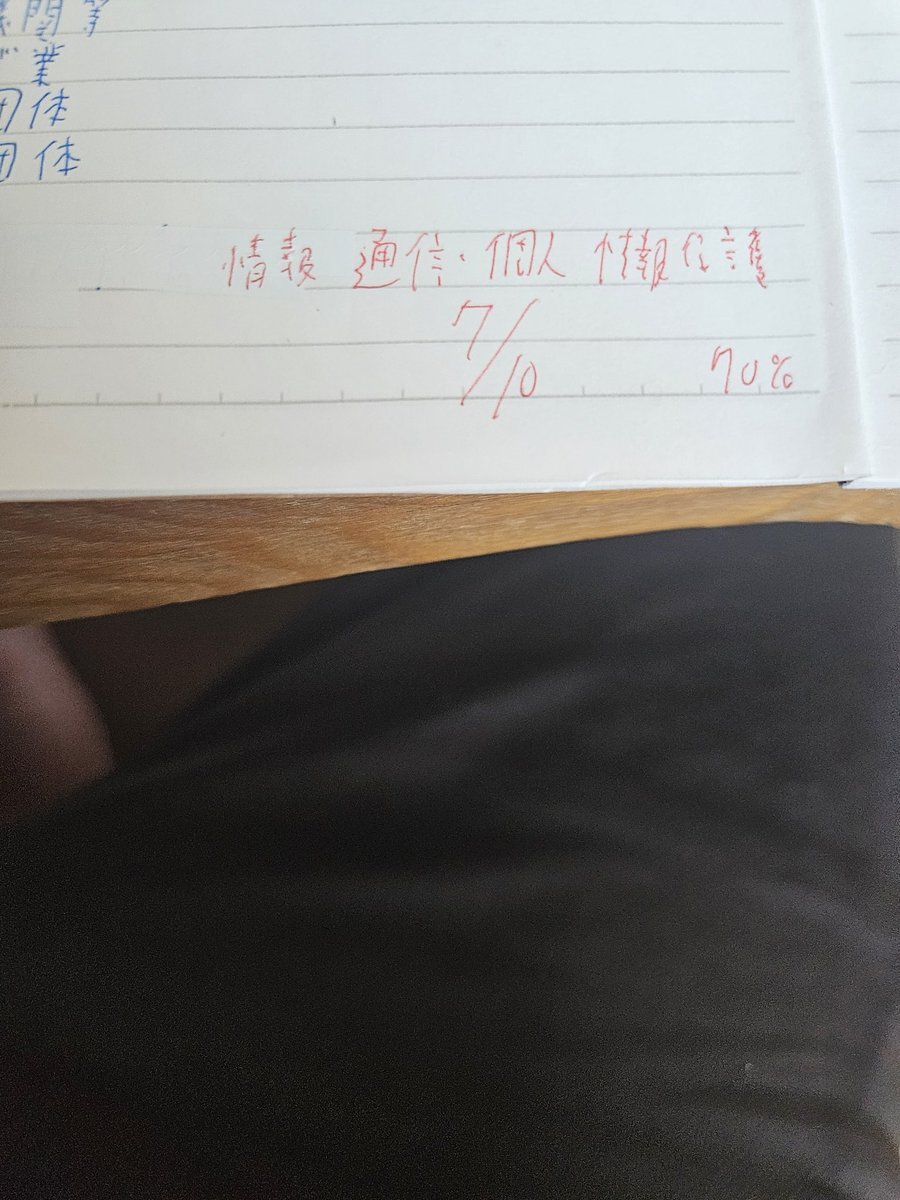 関等
業
団体
団体
情報 通信・個人 情報保護
7/10 70%